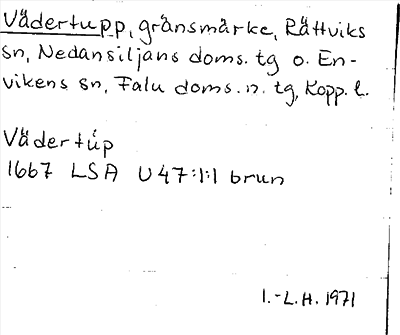 Vädertupp, gränsmärke, Rättviks
sn, Nedansiljans doms. tg o. En-
vikens sn, Falu doms. n. tg, Kopp. l.
Vädertúp
1667 LSA U47:1:1 brun
I.-L.H. 1971